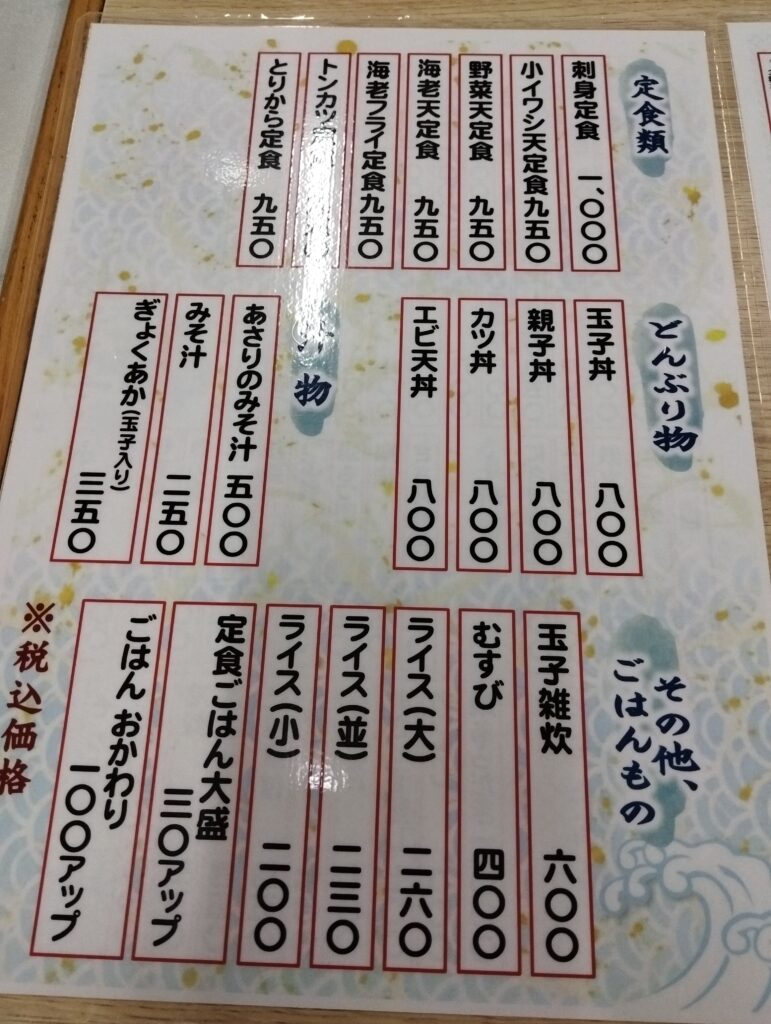 定食類
刺身定食 一、〇〇〇
小イワシ天定食 九五〇
野菜天定食 九五〇
海老天定食 九五〇
海老フライ定食 九五〇
トンカツ
とりから定食 九五〇
どんぶり物
玉子丼 八〇〇
親子丼 八〇〇
カツ丼 八〇〇
エビ天丼 八〇〇
汁物
あさりのみそ汁 五〇〇
みそ汁 二五〇
ぎょくあか(玉子入り) 三五〇
その他、
ごはんもの
玉子雑炊 六〇〇
むすび 四〇〇
ライス(大) 二六〇
ライス(並) 二三〇
ライス(小) 二〇〇
定食ごはん大盛
三〇アップ
ごはん おかわり
一〇〇アップ
※税込価格